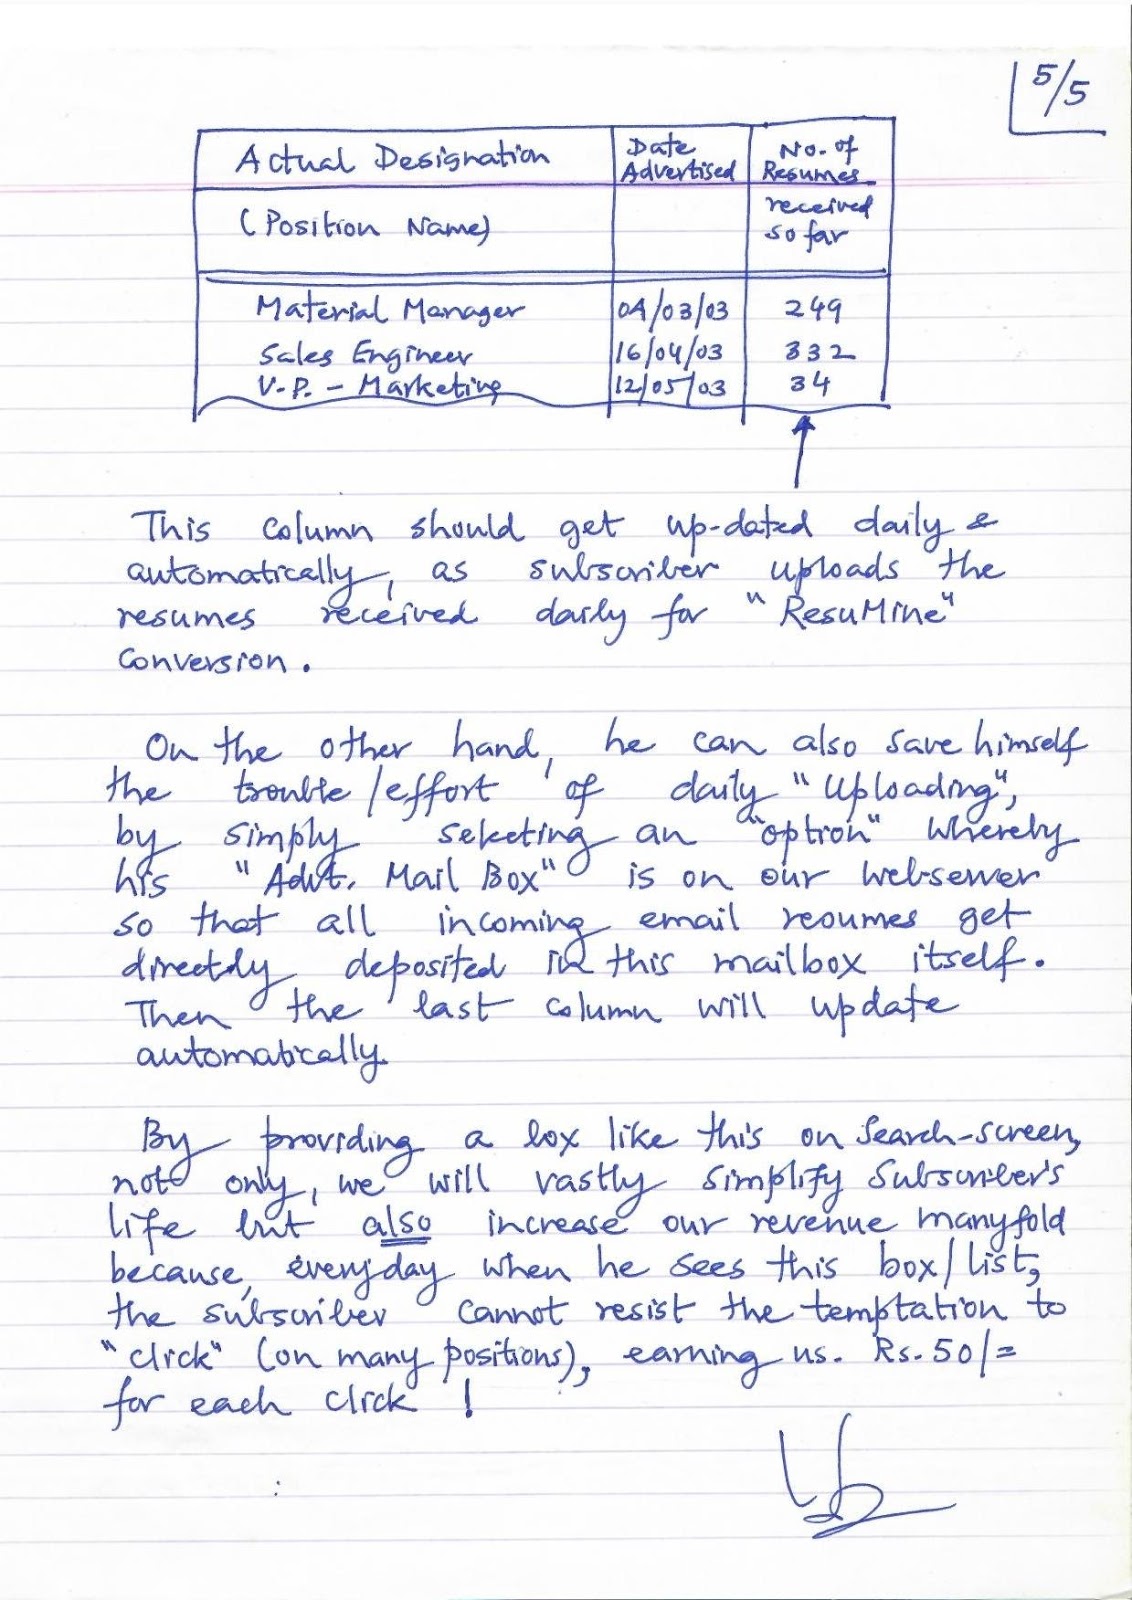 5/5
Actual Designation Date No. of
Advertised Resumes
(Position Name) received
so far
Material Manager 04/03/03 249
Sales Engineer 16/04/03 332
V.P. - Marketing 12/05/03 34
This column should get up-dated daily &
automatically, as subscriber uploads the
resumes received daily for "ResuMine"
Conversion.
On the other hand, he can also save himself
the trouble/effort of daily "Uploading",
by simply selecting an "option" whereby
his "Advt. Mail Box" is on our webserver
so that all incoming email resumes get
directly deposited in this mailbox itself.
Then the last column will update
automatically.
By providing a box like this on Search-screen,
not only, we will vastly simplify Subscriber's
life but also increase our revenue manyfold
because, everyday when he sees this box/list,
the subscriber cannot resist the temptation to
"click" (on many positions), earning us. Rs. 50/=
for each click !